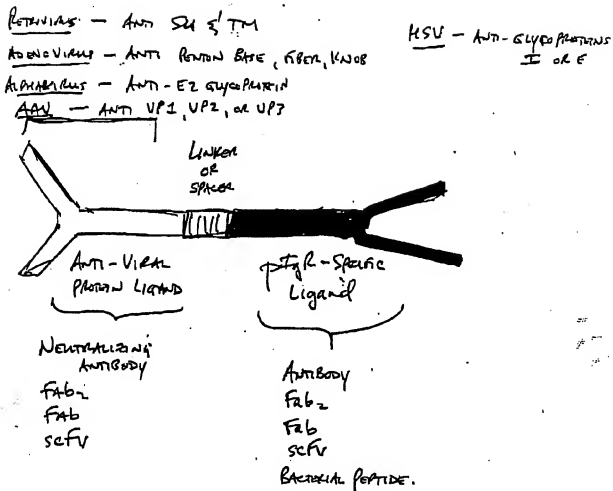 RETROVIRUS — ANTI SU & TM
ADENOVIRUS — ANTI PENTON BASE, FIBER, KNOB
ALPHAVIRUS — ANTI-E2 GLYCOPROTEIN
AAV — ANTI VP1, VP2, OR VP3
HSV — ANTI-GLYCOPROTEINS
I OR E
LINKER
OR
SPACER
ANTI-VIRAL
PROTEIN LIGAND
pIgR-SPECIFIC
Ligand
NEUTRALIZING
ANTIBODY
FAb2
FAb
scFV
ANTIBODY
Fab2
Fab
scFV
BACTERIAL PEPTIDE.